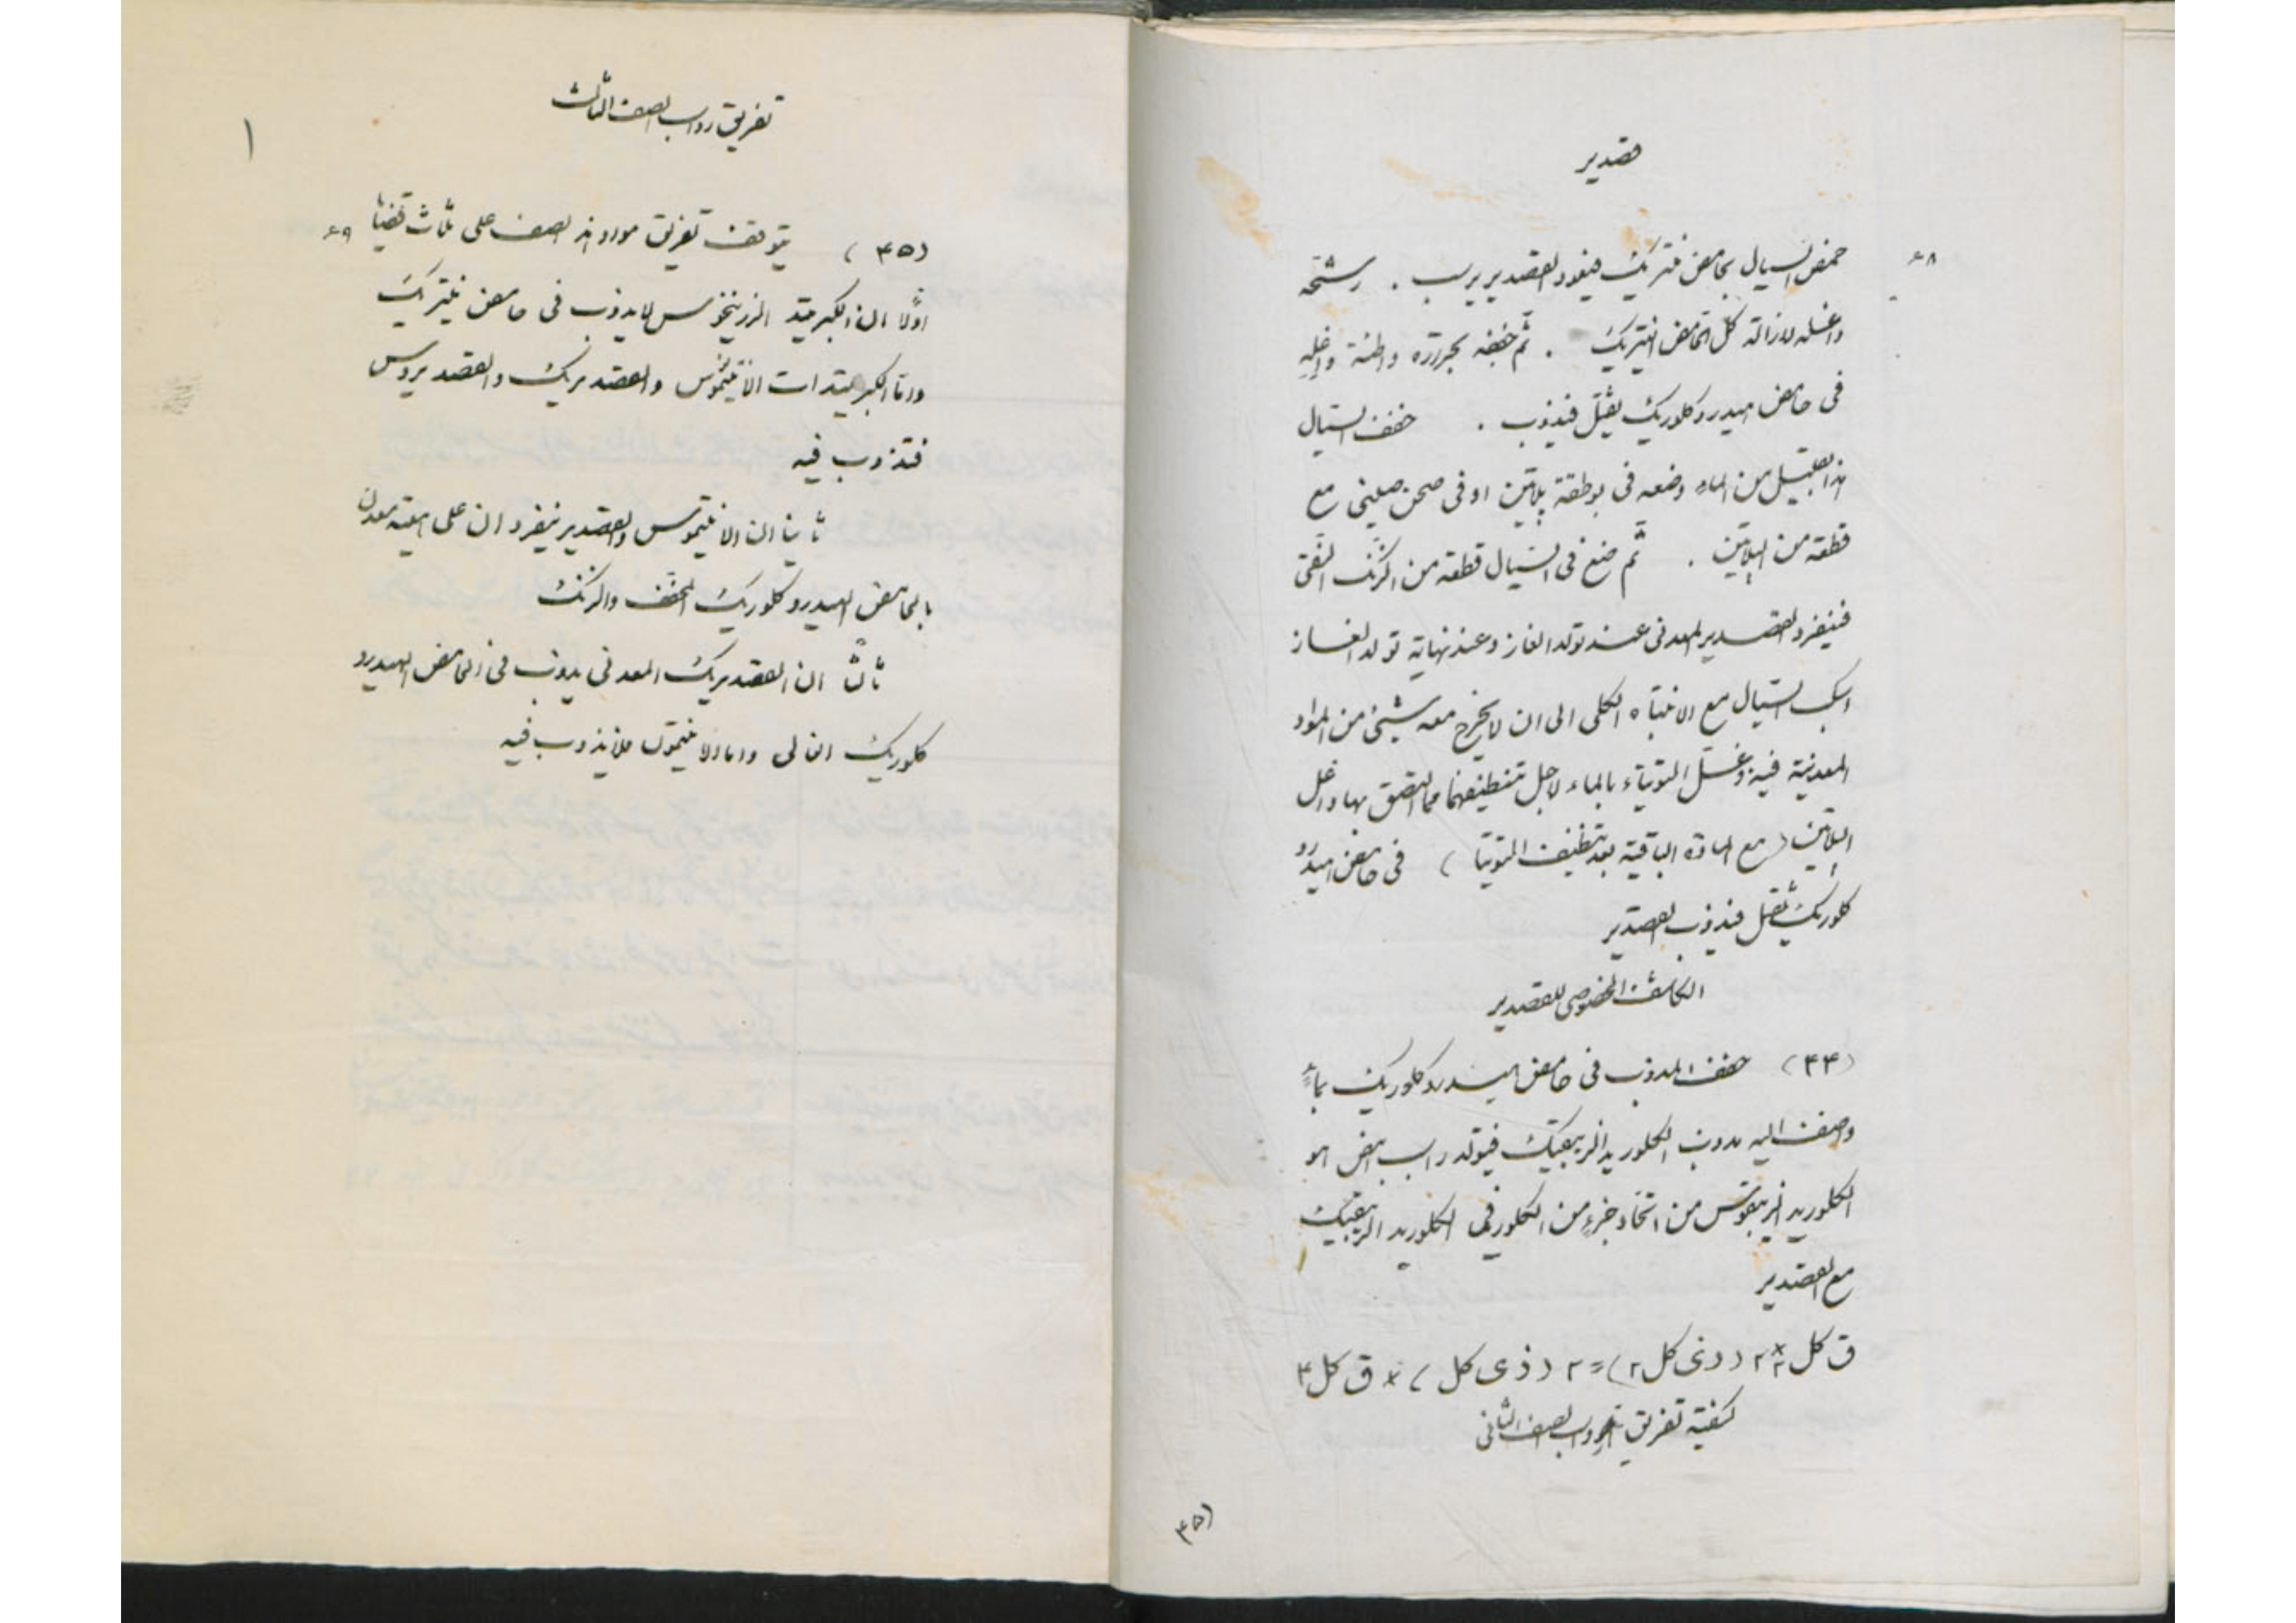 قصدير
٤٨
حمض السيال بحامض نتريك فيعود القصدير يرسب . رشحه
واغسله لازالة كل الحامض النتريك . ثم جففه بحرارة واطئة واغله
في حامض هيدروكلوريك ثقيل فيذوب . خفف السيال
هذا بقليل من الماء وضعه في بوطقة پلاتين او في صحن صيني مع
قطعة من الپلاتين . ثم ضع في السيال قطعة من الزنك النقي
فينفرد القصدير المعدني عند تولد الغاز وعند نهاية تولد الغاز
اسكب السيال مع الانتباه الكلي الى ان لا يخرج معه شيئ من المواد
المعدنية فيه وغسل التوتياء بالماء لاجل تنظيفها مما التصق بها واغل
الپلاتين (مع المادة الباقية بعد تنظيف التوتيا) في حامض هيدرو
كلوريك ثقيل فيذوب القصدير
الكاشف الخصوصي للقصدير
(٤٤) خفف المذوب في حامض هيدروكلوريك بماء
وضف اليه مذوب الكلوريد الزيبقيك فيتولد راسب ابيض هو
الكلوريد الزيبقوس من اتحاد جزء من الكلور في الكلوريد الزيبقيك
مع القصدير
ق كل ٢ + ٢ (ذي كل ٢) = ٢ (ذي كل) + ق كل ٤
كيفية تفريق رواسب الصف الثاني
(٤٥
تفريق رواسب الصف الثالث
١
٤٩
(٤٥) يتوقف تفريق مواد هذا الصف على ثلاث قضيا
اولا ان الكبريتيد الزرنيخوس لا يذوب في حامض نيتريك
واما الكبريتيدات الانتيموس والقصديريك والقصديروس
فتذوب فيه
ثانيا ان الانتيموس والقصدير ينفردان على هيئة معدن
بالحامض الهيدروكلوريك المخفف والزنك
ثالثا ان القصديريك المعدني يذوب في الحامض الهيدرو
كلوريك الغالي واما الانتيمون فلا يذوب فيه